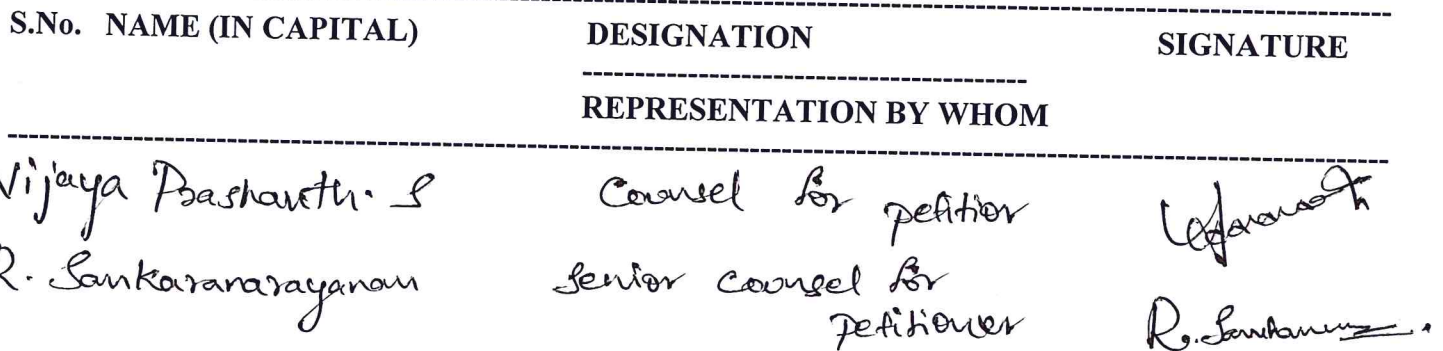 S.No. NAME (IN CAPITAL) DESIGNATION SIGNATURE
REPRESENTATION BY WHOM
Vijaya Prashanth. S Counsel for petitior
R. Sankaranarayanan Senior Counsel for
Petitioner